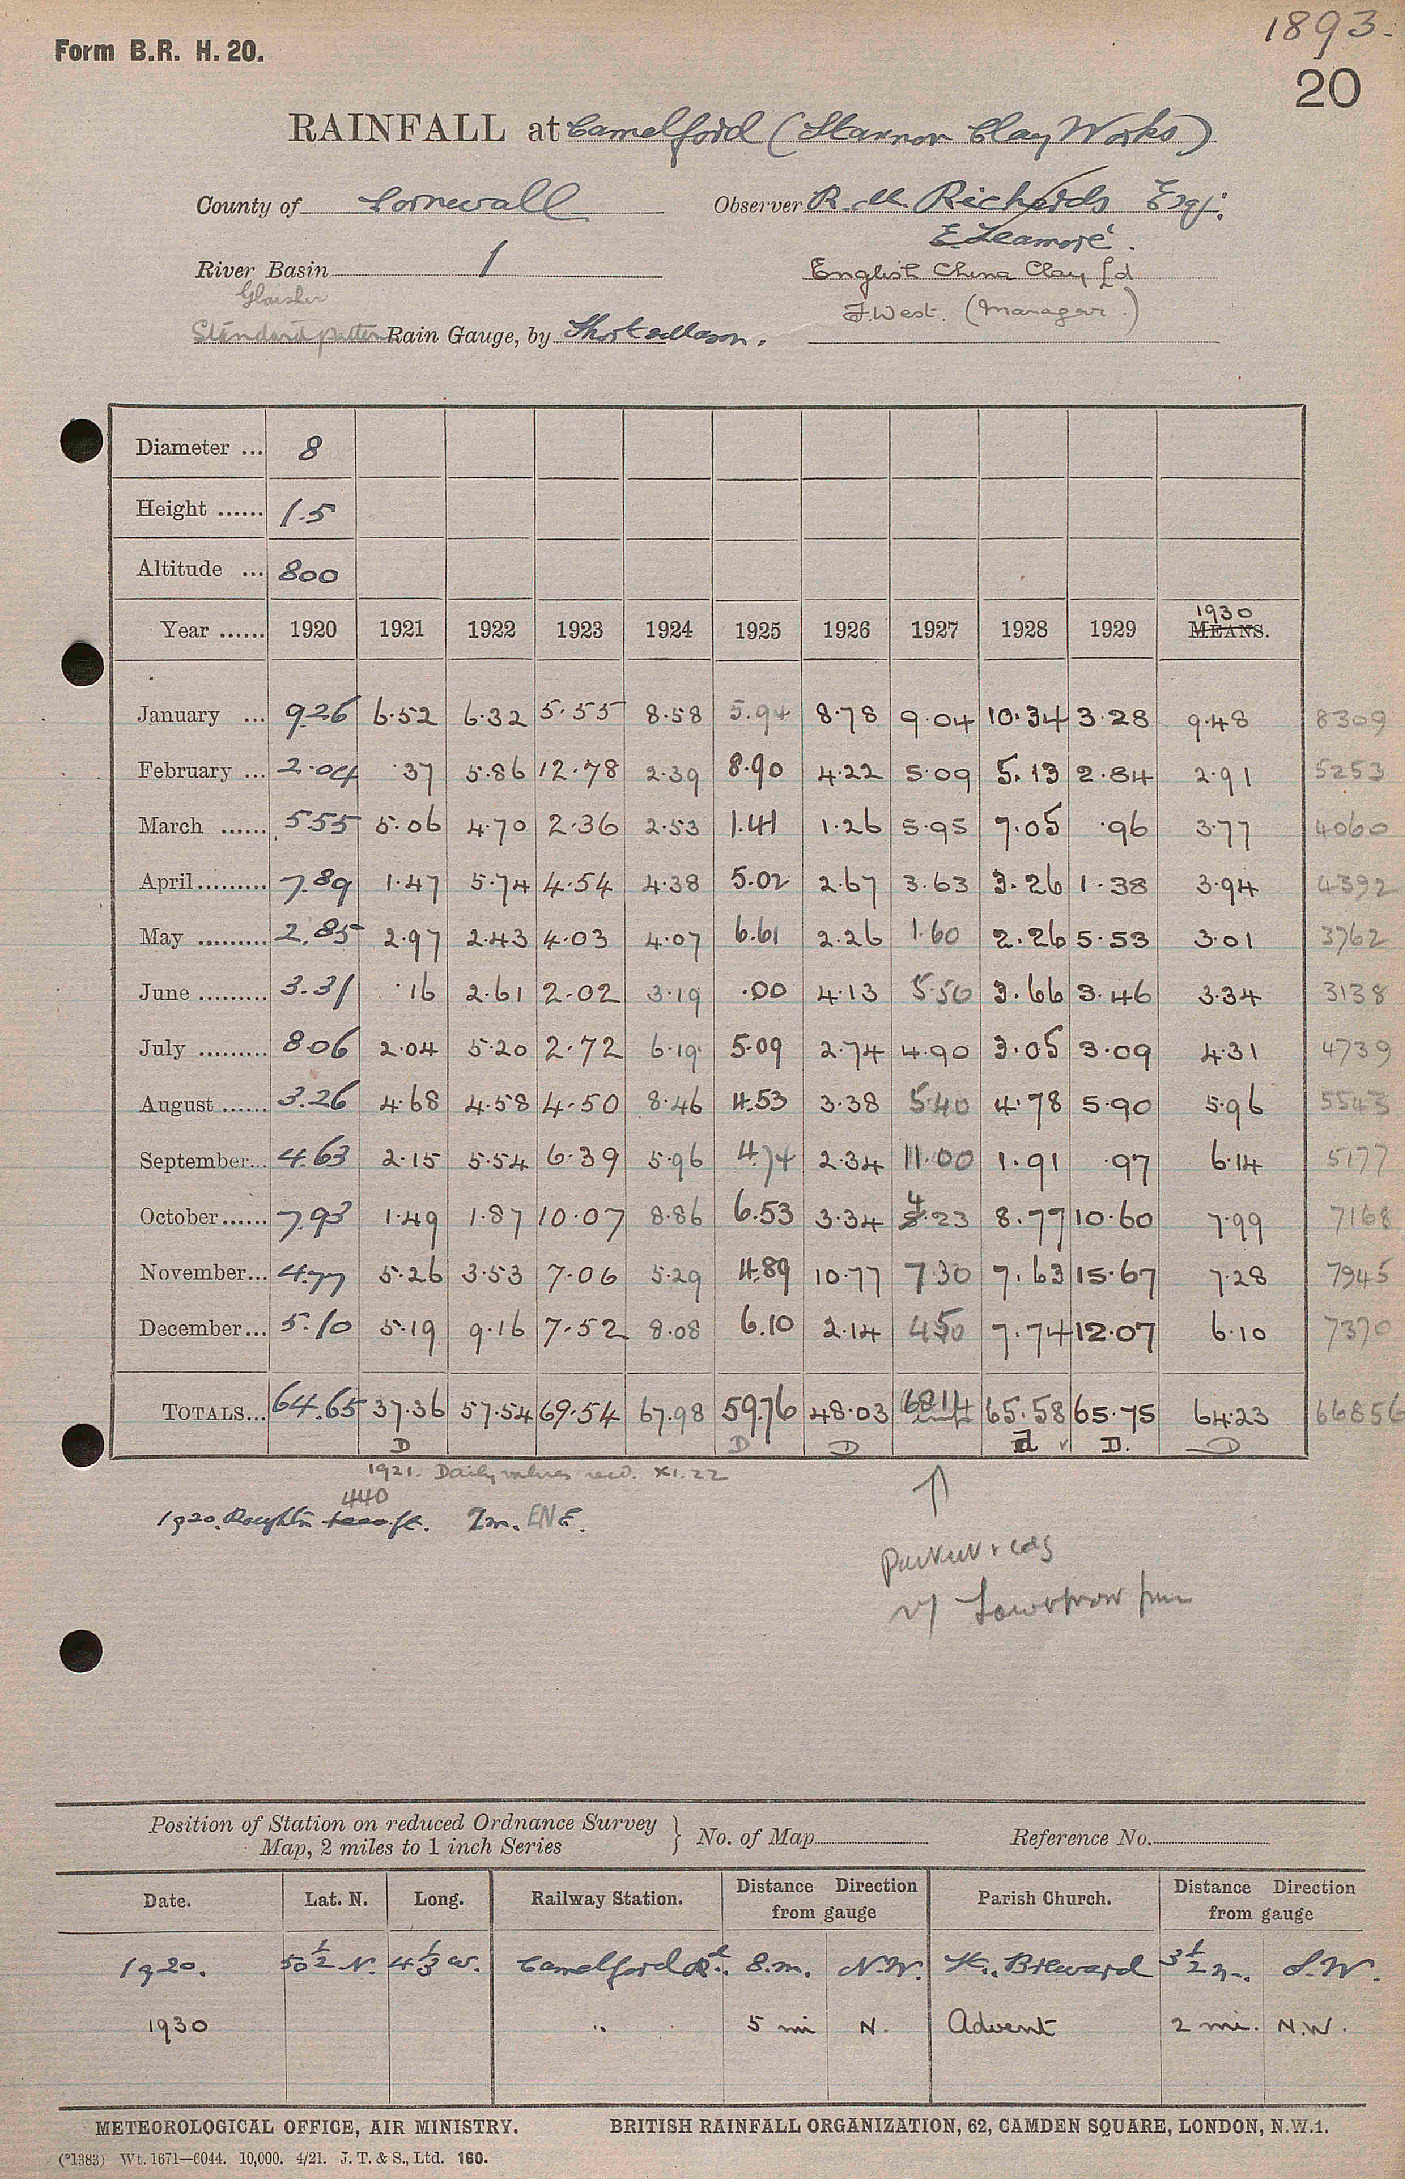 1893.
Form B.R. H. 20.
20
RAINFALL at Camelford (Stannon Clay Works)
County of Cornwall Observer R. M. Richards Esq.
E Leamore.
River Basin 1 English China Clay Ld
Glaisher
F. West. (Manager.)
Standard pattern Rain Gauge, by Short & Mason.
Diameter ... 8
Height ...... 1.5
Altitude ... 800
1930
Year ...... 1920 1921 1922 1923 1924 1925 1926 1927 1928 1929 MEANS.
January ... 9.26 6.52 6.32 5.55 8.58 5.94 8.78 9.04 10.34 3.28 9.48 8309
February ... 2.04 .37 5.86 12.78 2.39 8.90 4.22 5.09 5.13 2.84 2.91 5253
March ...... 5.55 5.06 4.70 2.36 2.53 1.41 1.26 5.95 7.05 .96 3.77 4060
April ......... 7.89 1.47 5.74 4.54 4.38 5.02 2.67 3.63 3.26 1.38 3.94 4392
May ......... 2.85 2.97 2.43 4.03 4.07 6.61 2.26 1.60 2.26 5.53 3.01 3762
June ......... 3.31 .16 2.61 2.02 3.19 .00 4.13 5.50 3.66 3.46 3.34 3138
July ......... 8.06 2.04 5.20 2.72 6.19 5.09 2.74 4.90 3.05 3.09 4.31 4739
August ...... 3.26 4.68 4.58 4.50 8.46 4.53 3.38 5.40 4.78 5.90 5.96 5543
September... 4.63 2.15 5.54 6.39 5.96 4.74 2.34 11.00 1.91 .97 6.14 5177
October ...... 7.93 1.49 1.87 10.07 8.86 6.53 3.34 4.23 8.77 10.60 7.99 7168
November... 4.77 5.26 3.53 7.06 5.29 4.89 10.77 7.30 7.63 15.67 7.28 7945
December... 5.10 5.19 9.16 7.52 8.08 6.10 2.14 4.50 7.74 12.07 6.10 7370
TOTALS... 64.65 37.36 57.54 69.54 67.98 59.76 48.03 68.14 65.58 65.75 64.23 66856
D D D d D. D
1921. Daily values recd. XI.22
440
1920. Roughtor ft. 2m. ENE.
Position of Station on reduced Ordnance Survey
Map, 2 miles to 1 inch Series } No. of Map Reference No.
Date. Lat. N. Long. Railway Station. Distance Direction from gauge Parish Church. Distance Direction from gauge
1920. 50 1/2 N. 4 1/3 W. Camelford Rd. 8.m. N.W. St. Breward 3 1/2 m. S.W.
1930 " 5 mi N. Advent 2 mi. N.W.
METEOROLOGICAL OFFICE, AIR MINISTRY. BRITISH RAINFALL ORGANIZATION, 62, CAMDEN SQUARE, LONDON, N.W.1.
(*1383) Wt. 1671—6044. 10,000. 4/21. J. T. & S., Ltd. 160.